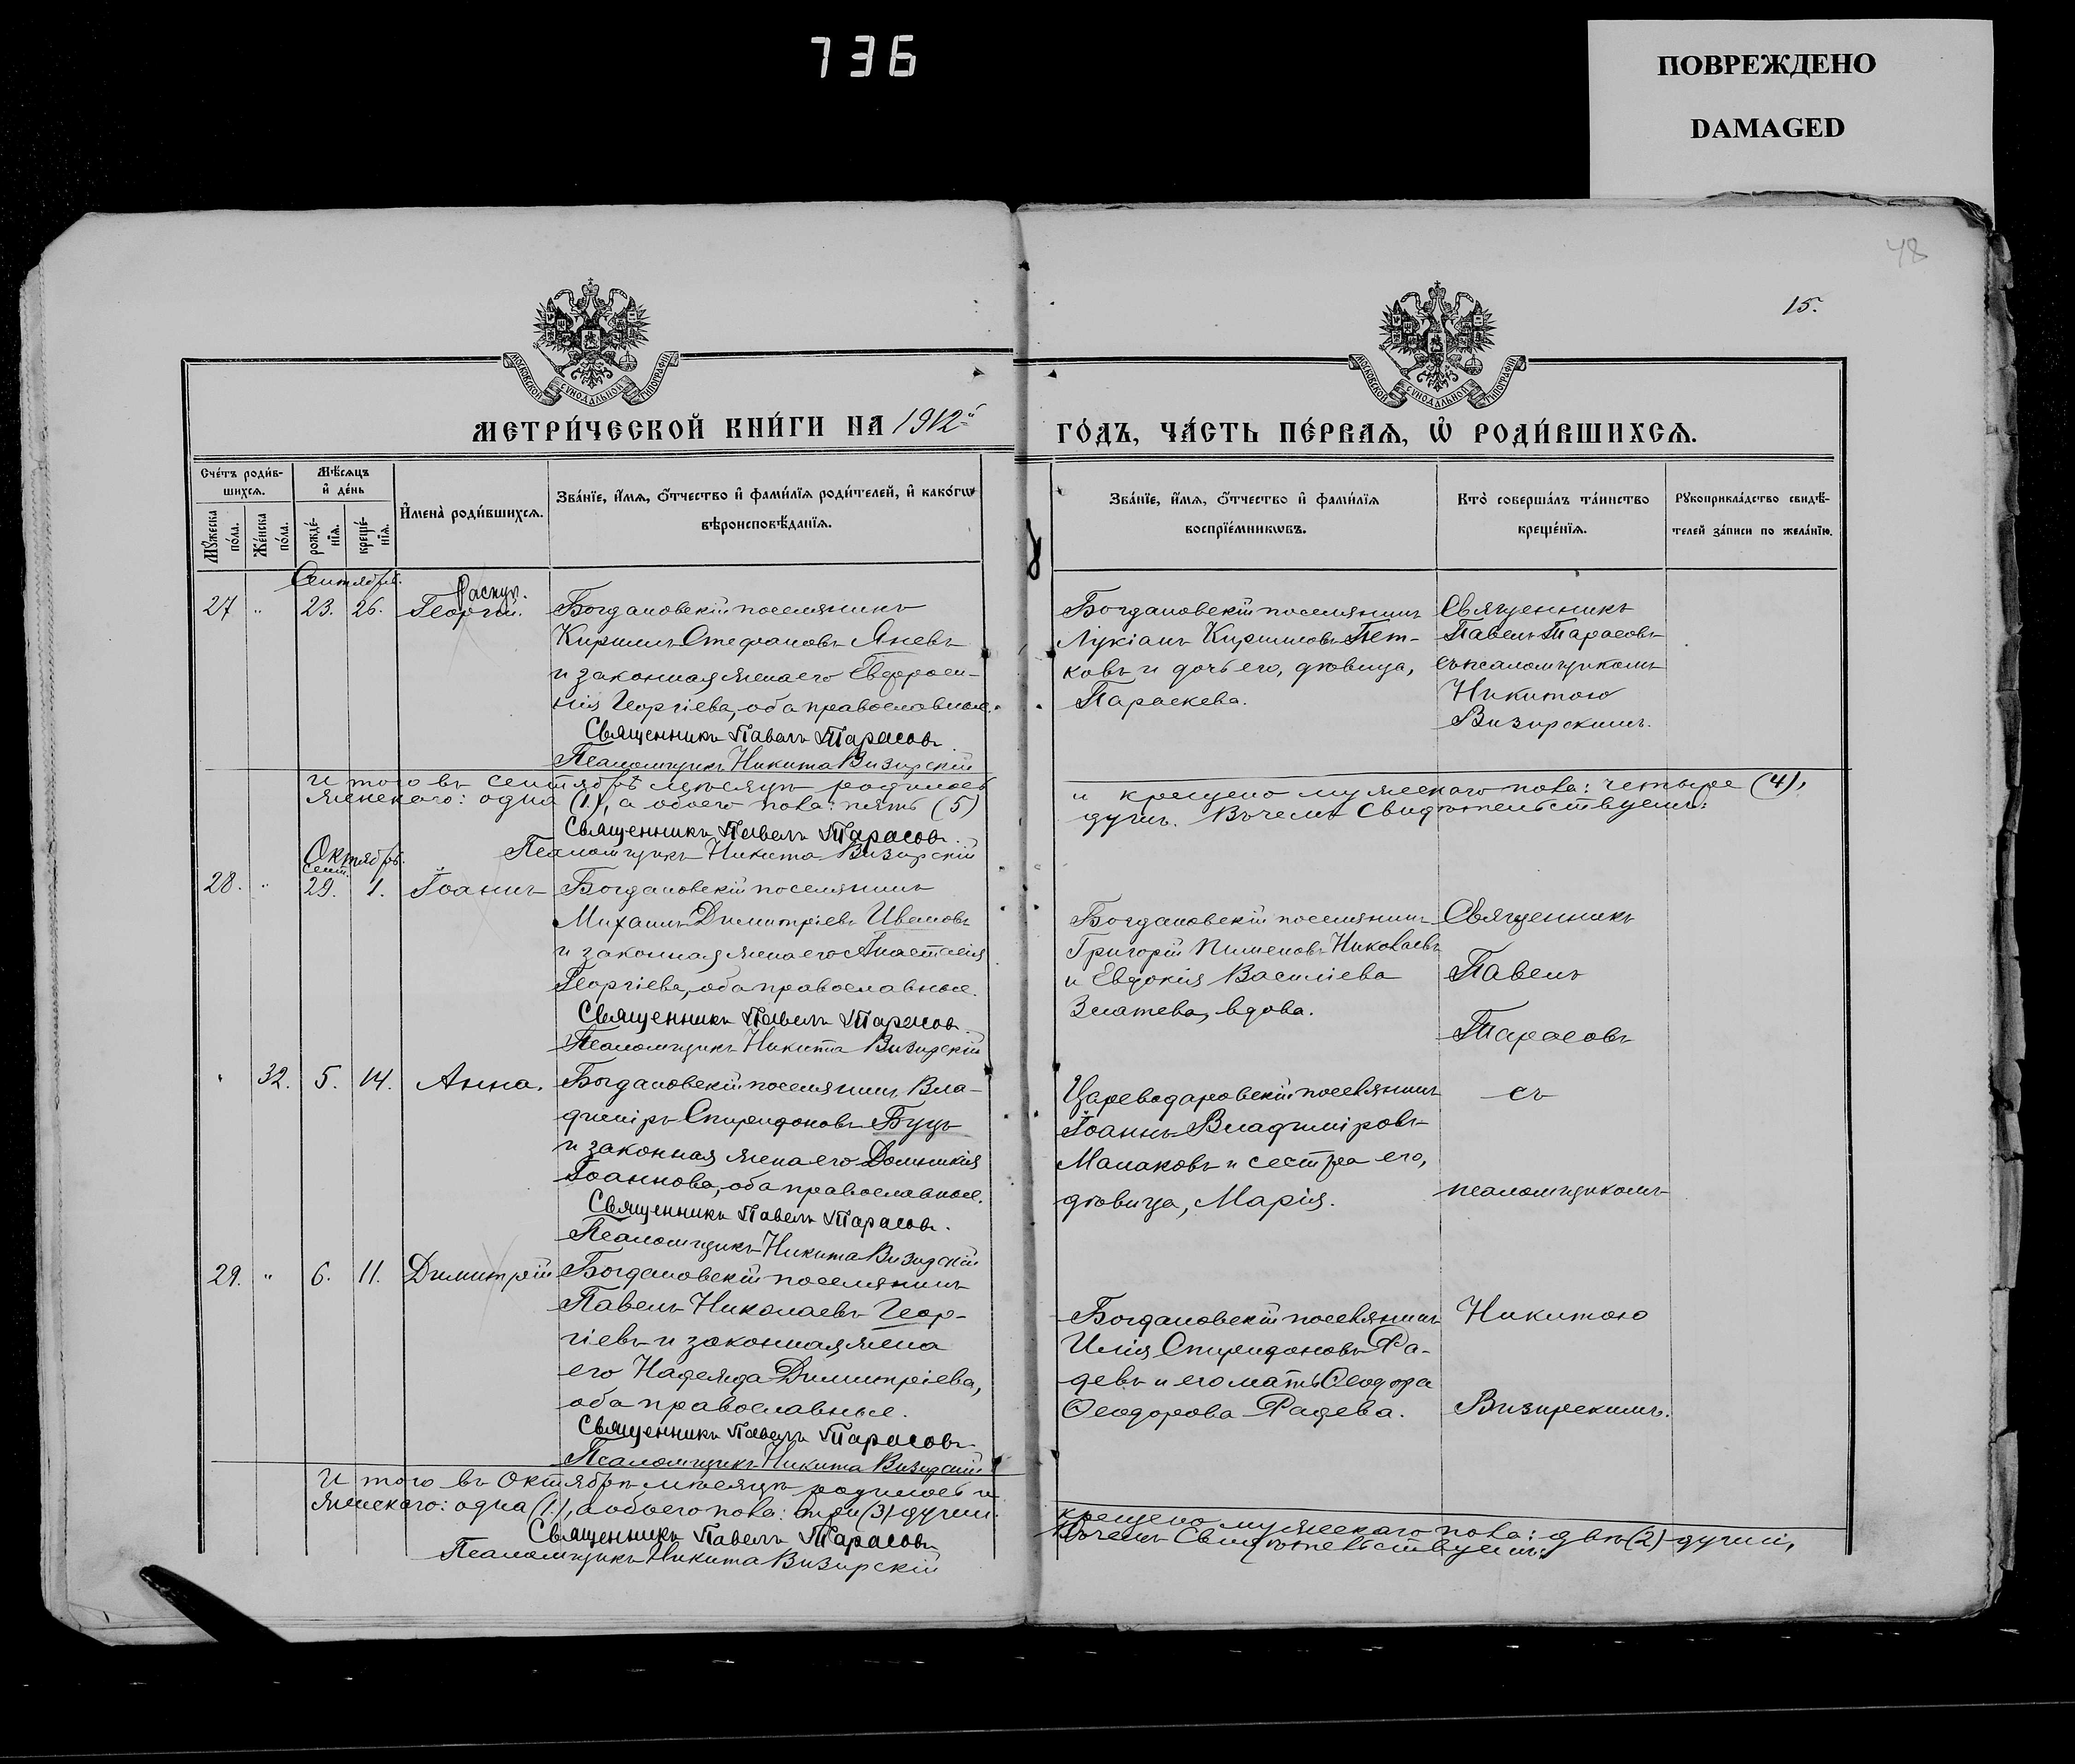 736
ПОВРЕЖДЕНО
DAMAGED
48
15.
МОСКОВСКОЙ СѴНОДАЛЬНОЙ ТИПОГРАФІИ
МОСКОВСКОЙ СѴНОДАЛЬНОЙ ТИПОГРАФІИ
МЕТРИ́ЧЕСКОЙ КНИ́ГИ НА 1912й
ГО́ДЪ, ЧА́СТЬ ПЕ́РВАѦ, Ѡ҆ РОДИ́ВШИХСѦ.
Сче́тъ роди́в-
шихсѧ.
Мꙋжеска по́ла.
Же́нска по́ла.
Мѣ́сѧцъ
и҆ де́нь
рожде́-
нїѧ.
креще́-
нїѧ.
И҆мена̀ роди́вшихсѧ.
Зва́нїе, и҆́мѧ, ѻ҆́тчество и҆ фами́лїѧ роди́телей, и҆ како́гѡ
вѣроисповѣ́данїѧ.
Зва́нїе, и҆́мѧ, ѻ҆́тчество и҆ фами́лїѧ
воспрїе́мникѡвъ.
Кто̀ соверша́лъ та́инство
креще́нїѧ.
Рꙋкоприкла́дство свидѣ́-
телей за́писи по жела́нїю.
Сентябрь.
27 " 23. 26. Георгій.
Богдановскій поселянинъ
Кириллъ Стефановъ Яневъ
и законная жена его Евфроси-
нія Георгіева, оба православные.
Священникъ Павелъ Тарасовъ.
Псаломщикъ Никита Визирскій
Богдановскій поселянинъ
Лукіанъ Кирилловъ Пет-
ковъ и дочь его, дѣвица,
Параскева.
Священникъ
Павелъ Тарасовъ
съ псаломщикомъ
Никитою
Визирскимъ.
Итого въ сентябрѣ мѣсяцѣ родилось
и крещено мужескаго пола: четыре (4),
женскаго: одна (1), а обоего пола: пять (5)
душъ. Въ чемъ Свидѣтельствуемъ:
Священникъ Павелъ Тарасовъ.
Псаломщикъ Никита Визирскій
Октябрь.
Сент.
28. " 29. 1. Іоаннъ
Богдановскій поселянинъ
Михаилъ Димитріевъ Ивановъ
и законная жена его Анастасія
Георгіева, оба православные.
Священникъ Павелъ Тарасовъ.
Псаломщикъ Никита Визирскій
Богдановскій поселянинъ
Григорій Пименовъ Николаевъ
и Евдокія Василіева
Златева, вдова.
Священникъ
Павелъ
Тарасовъ
" 32. 5. 14. Анна.
Богдановскій поселянинъ Вла-
диміръ Спиридоновъ Буцъ
и законная жена его Домникія
Іоаннова, оба православные.
Священникъ Павелъ Тарасовъ.
Псаломщикъ Никита Визирскій
Цареводаровскій поселянинъ
Іоаннъ Владиміровъ
Манаковъ и сестра его,
дѣвица, Марія.
съ
псаломщикомъ
29. " 6. 11. Димитрій
Богдановскій поселянинъ
Павелъ Николаевъ Геор-
гіевъ и законная жена
его Надежда Димитріева,
оба православные.
Священникъ Павелъ Тарасовъ
Псаломщикъ Никита Визирскій
Богдановскій поселянинъ
Илія Спиридоновъ Ра-
девъ и его мать Ѳеодора
Ѳеодорова Радева.
Никитою
Визирскимъ.
Итого въ Октябрѣ мѣсяцѣ родилось и
крещено мужескаго пола: двѣ (2) души,
женскаго: одна (1), а обоего пола: три (3) души.
Въ чемъ Свидѣтельствуемъ:
Священникъ Павелъ Тарасовъ
Псаломщикъ Никита Визирскій